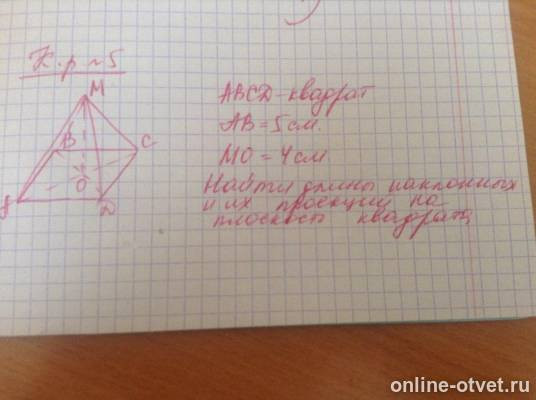 К.р №5
M
B
C
O
A
D
ABCD - квадрат
AB = 5 см.
MO = 4 см
Найти длины наклонных
и их проекции на
плоскость квадрата
online-otvet.ru